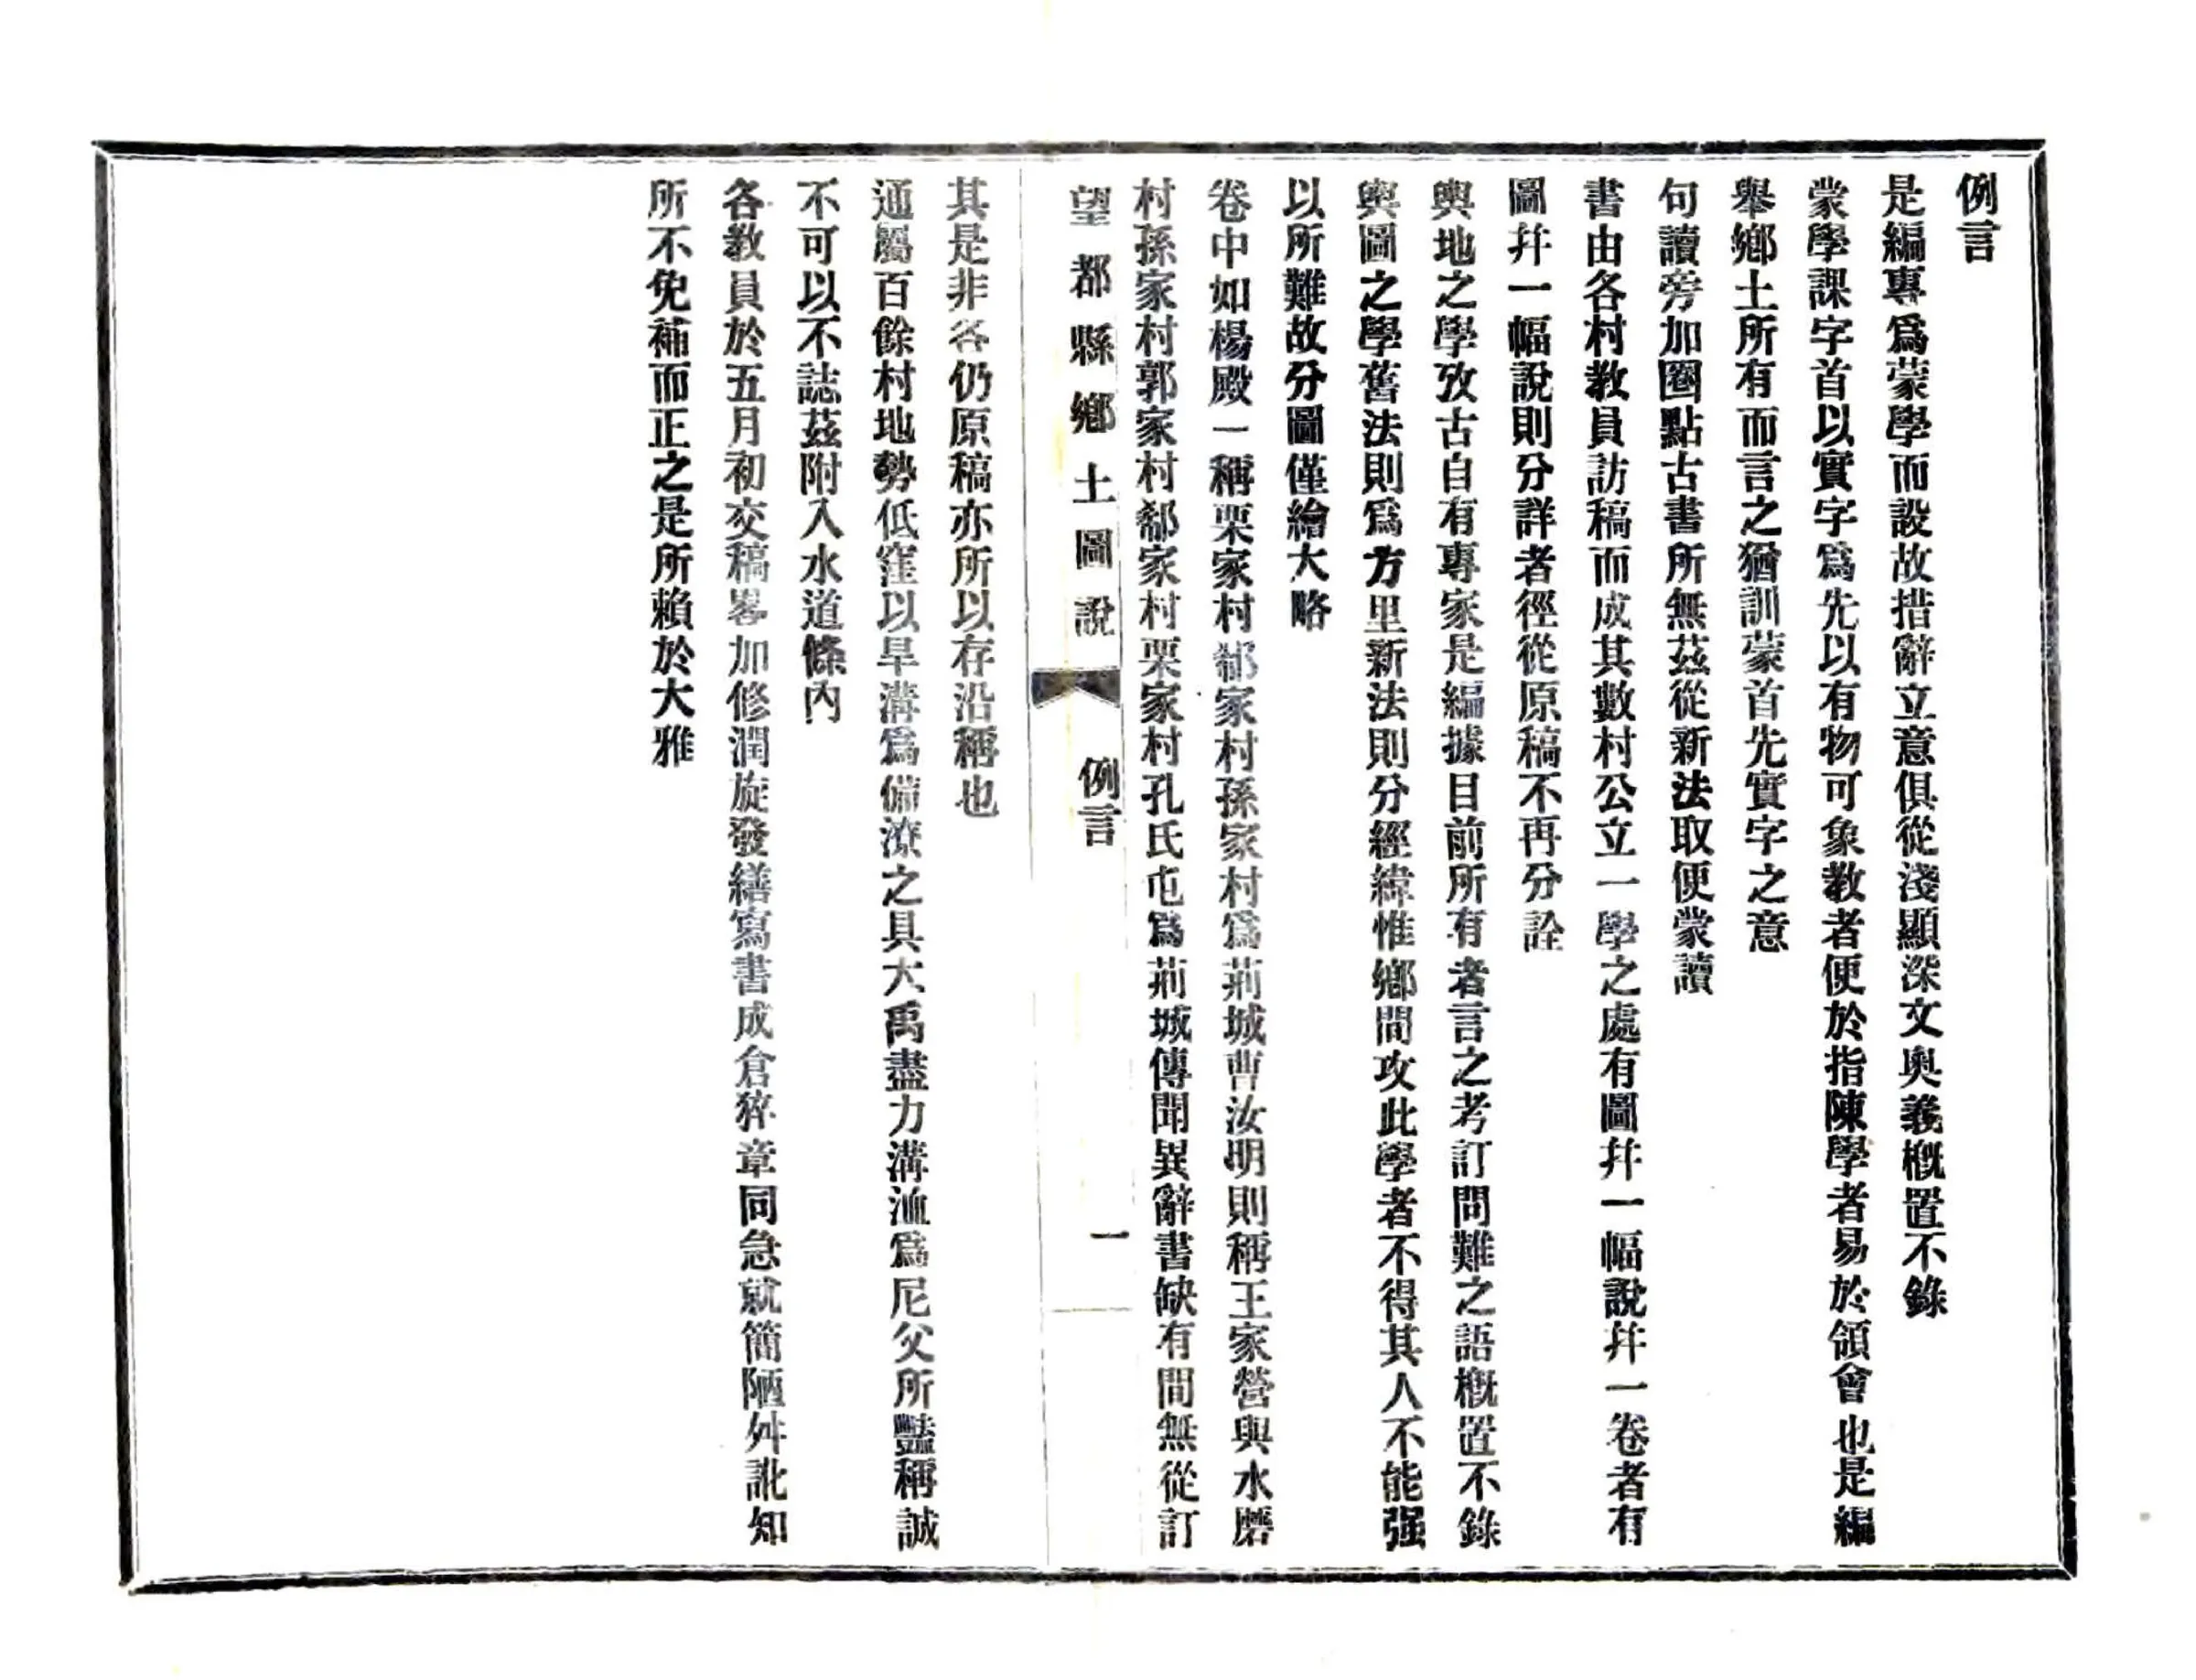 例言
是編專爲蒙學而設故措辭立意俱從淺顯深文奥義槪置不錄
蒙學課字首以實字爲先以有物可象教者便於指陳學者易於領會也是編
舉鄉土所有而言之猶訓蒙首先實字之意
句讀旁加圈點古書所無茲從新法取便蒙讀
書由各村教員訪稿而成其數村公立一學之處有圖幷一幅說幷一卷者有
圖幷一幅說則分詳者徑從原稿不再分詮
輿地之學攷古自有專家是編據目前所有者言之考訂問難之語槪置不錄
輿圖之學舊法則爲方里新法則分經緯惟鄉間攻此學者不得其人不能强
以所難故分圖僅繪大略
卷中如楊殿一稱栗家村郗家村孫家村爲荊城曹汝明則稱王家營與水磨
村孫家村郭家村郗家村栗家村孔氏屯爲荊城傳聞異辭書缺有間無從訂
望都縣鄉土圖說 例言 一
其是非各仍原稿亦所以存沿稱也
通屬百餘村地勢低窪以旱溝爲備潦之具大禹盡力溝洫爲尼父所豔稱誠
不可以不誌茲附入水道條內
各教員於五月初交稿畧加修潤旋發繕寫書成倉猝章同急就簡陋舛訛知
所不免補而正之是所賴於大雅